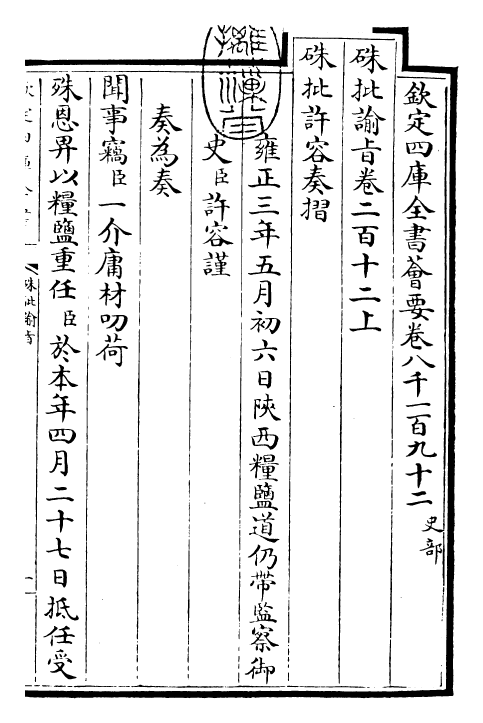 欽定四庫全書薈要卷八千一百九十二 史部
硃批諭旨卷二百十二上
硃批許容奏摺
雍正三年五月初六日陝西糧鹽道仍帶監察御
史臣許容謹
奏為奏
聞事竊臣一介庸材叨荷
殊恩畀以糧鹽重任臣於本年四月二十七日抵任受
欽定四庫全書
硃批諭旨
一